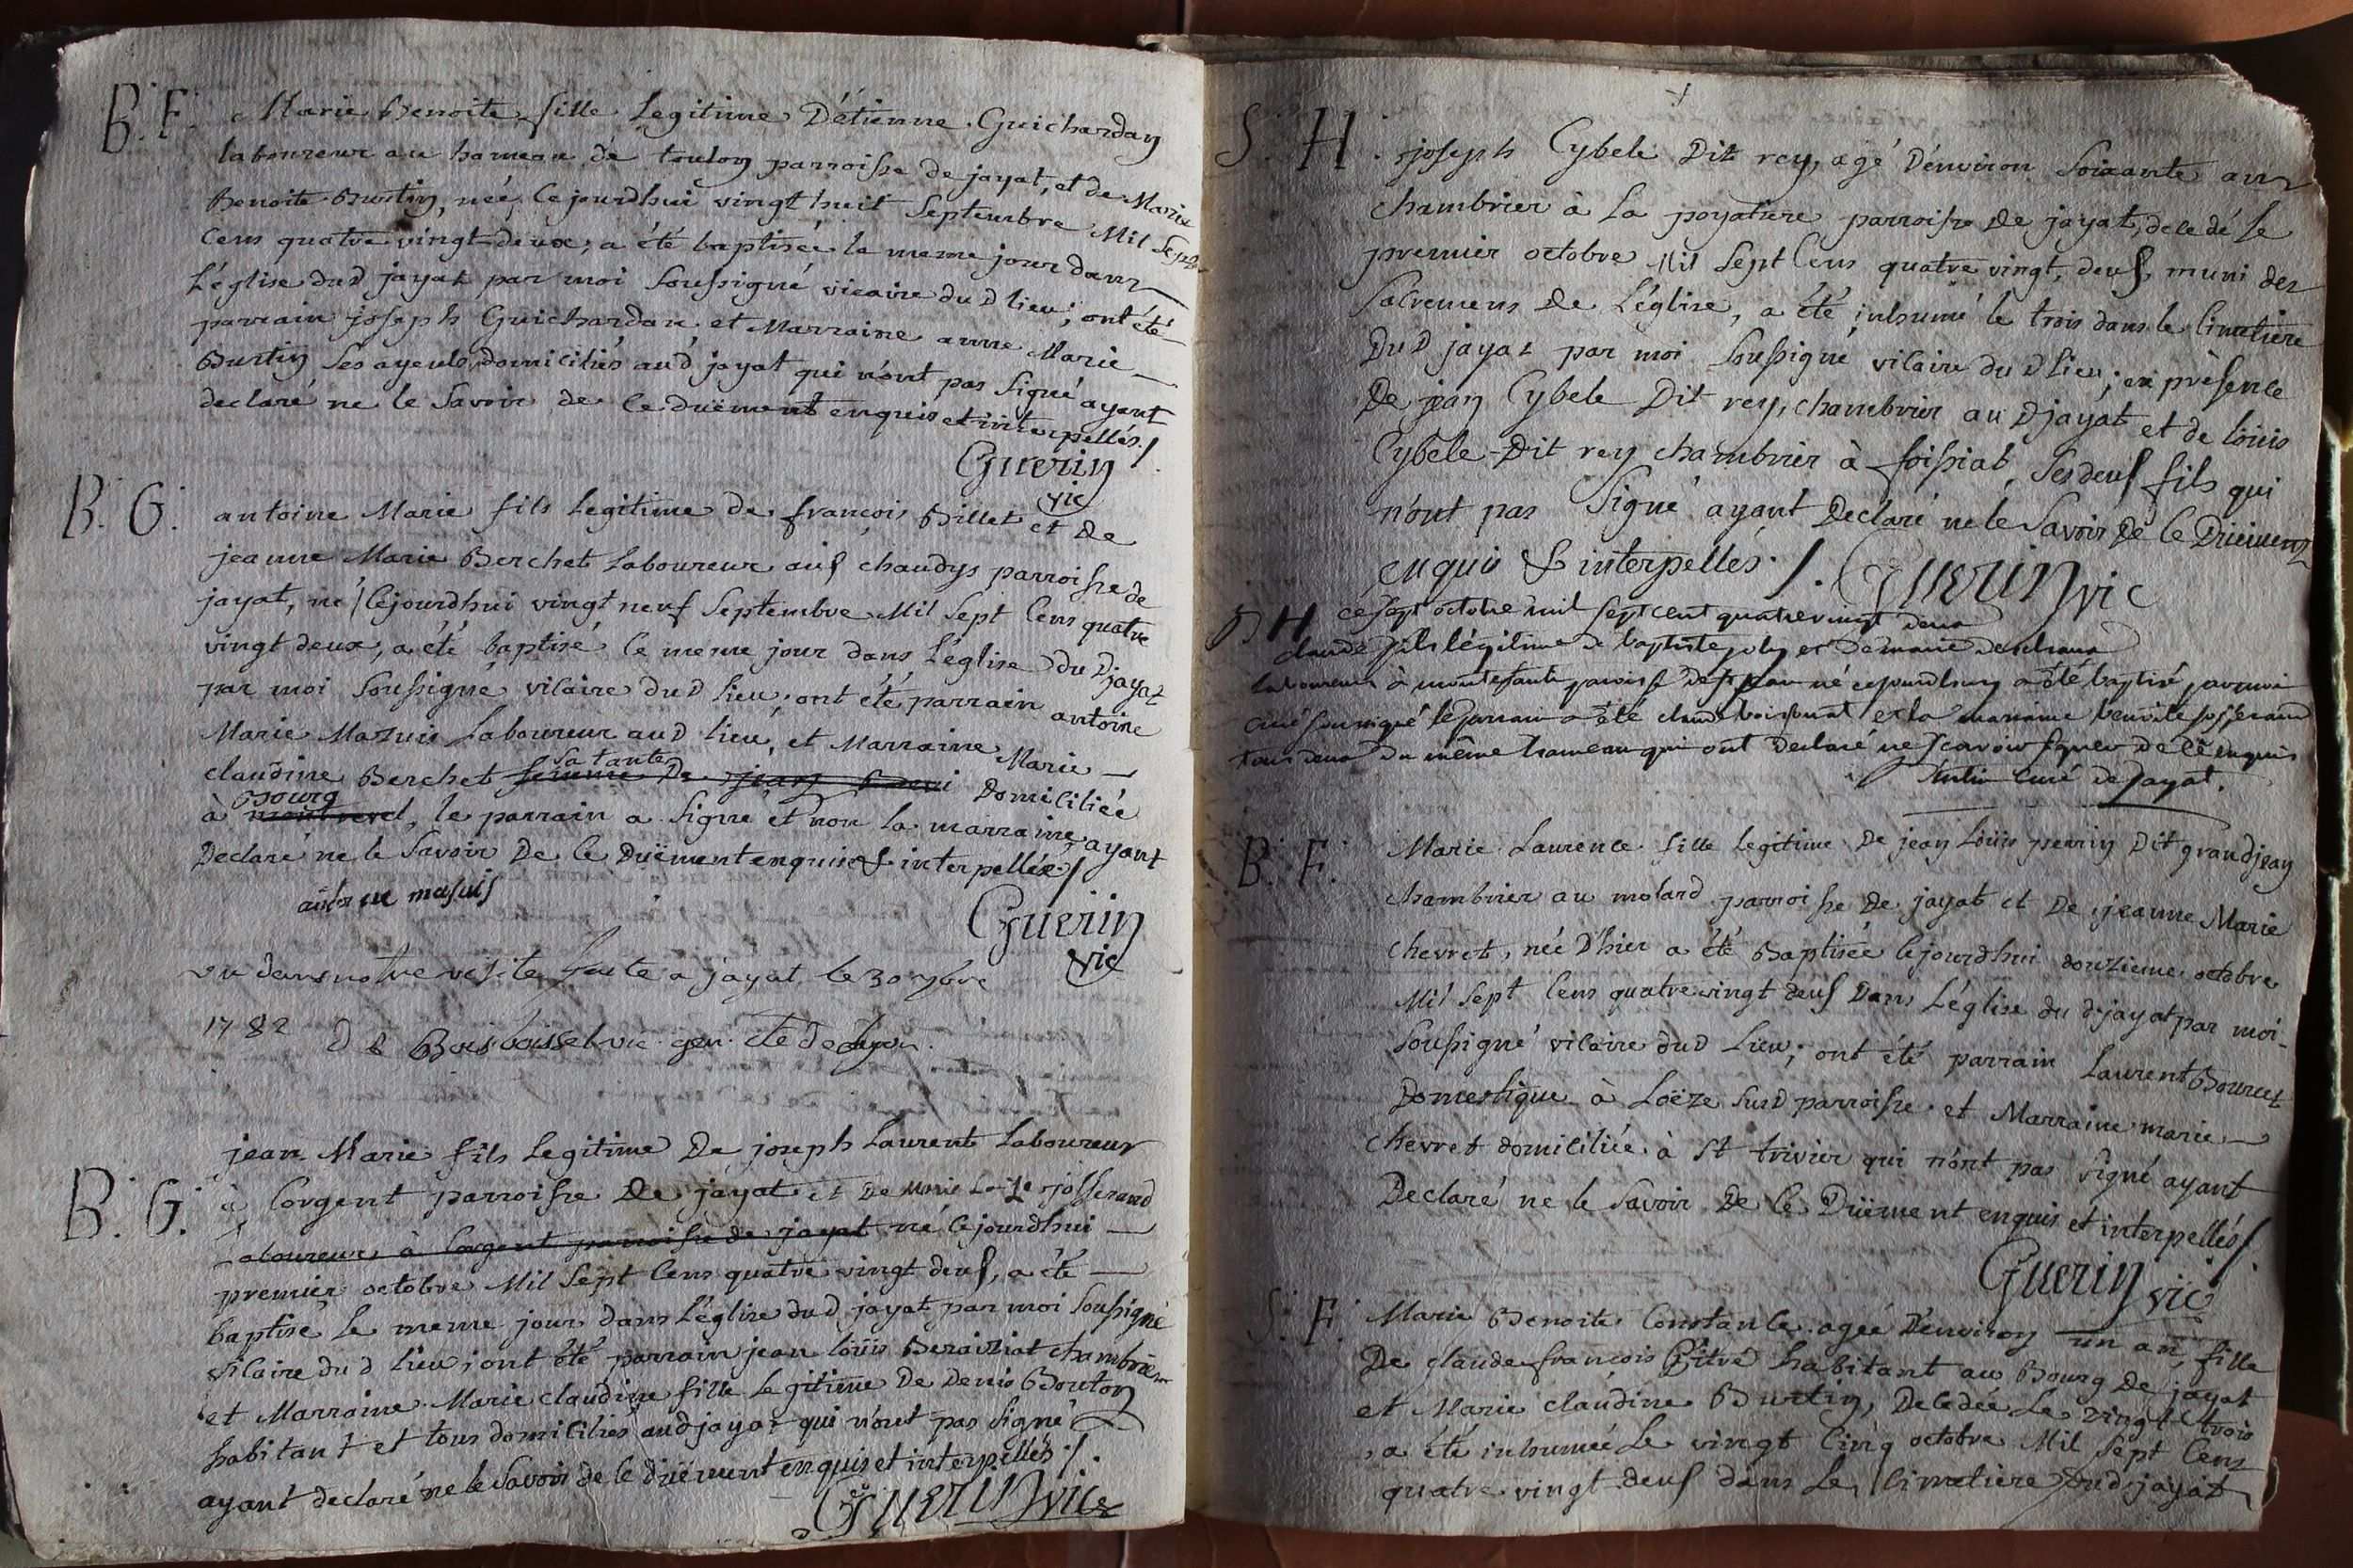 B. F. Marie Benoite fille Legitime D'étienne Guichardan
laboureur au hameau de toulon parroisse de jayat, et de Marie
Benoite Burtin, née Cejourdhui vingt huit Septembre Mil Sept
Cens quatre vingt deux, a été baptisée le meme jour dans
L'église dud jayat par moi Soussigné vicaire dud lieu; ont été
parrain joseph Guichardan et Marraine anne Marie
Burtin Ses ayeuls domiciliés aud jayat qui n'ont pas Signé ayant
declaré ne le Savoir de Ce duëment enquis et interpellés /.
Guerin
vic
B. G. antoine Marie fils Legitime de françois Billet et De
jeanne Marie Berchet Laboureur aus chaudys parroisse de
jayat, né Cejourdhui vingt neuf Septembre Mil Sept Cens quatre
vingt deux, a été baptisé le meme jour dans L'église du D jayat
par moi Soussigné vicaire dud lieu; ont été parrain antoine
Marie Mazuis Laboureur aud lieu, et Marraine Marie
claudine Berchet femme De jean sa tante Domiciliée
à montrevel Bourg, le parrain a Signé et non la marraine ayant
Declaré ne le Savoir De Ce Duëment enquise & interpellée /.
masuis
Guerin
vic
vu dans notre visite faite a jayat le 30 7bre
1782 vic. gen.
jean Marie fils Legitime De joseph Laurent Laboureur
B. G. à Corgent parroisse De jayat et De Marie josserand
Laboureur à Corgent parroisse de jayat né Cejourdhui
premier octobre Mil Sept Cens quatre vingt deus, a été
baptisé Le meme jour dans L'église dud jayat par moi Soussigné
vicaire dud lieu; ont été parrain jean loüis Beraiziat chambrier
et Marraine Marie claudine fille Legitime De Denis Bouton
habitant et tous domiciliés aud jayat qui n'ont pas Signé
ayant declaré ne le Savoir de Ce düement enquis et interpellés /.
Guerin vic
S. H. joseph Cybele Dit rey, agé D'environ Soixante ans
chambrier à La poyatiere parroisse De jayat, decedé Le
premier octobre Mil Sept Cens quatre vingt deus muni des
Sacremens De L'église, a été inhumé le trois dans le Cimetiere
Du D jayat par moi Soussigné vicaire du D lieu; en présence
De jean Cybele Dit rey, chambrier au D jayat et de loüis
Cybele Dit rey chambrier à foissiat, Ses deus fils qui
n'ont pas Signé ayant Declaré ne le Savoir De Ce Duëment
enquis & interpellés /. Guerin vic
B H ce sept octobre mil sept cent quatre vingt deux
claude fils légitime de baptiste joly et de marie
laboureur à paroisse de né cejourdhuy a été baptisé par moi
curé soussigné le parrain a été claude et la marraine benoite josserand
tous deux du même hameau qui ont declaré ne scavoir signer de ce enquis
curé de jayat.
B. F. Marie Laurence fille Legitime De jean Loüis perrin Dit grandjean
chambrier au molard parroisse De jayat et De jeanne Marie
chevret, née D'hier a été Baptisée Cejourdhui douzieme octobre
Mil Sept Cens quatre vingt deus Dans L'église du d jayat par moi
Soussigné vicaire dud Lieu; ont été parrain Laurent Bourcet
Domestique à Loëze Susd parroisse et Marraine marie
chevret domiciliée à St trivier qui n'ont pas Signé ayant
Declaré ne le Savoir De Ce Düement enquis et interpellés /.
Guerin vic
S. F. Marie Benoite Constance agée D'environ un an, fille
De claude françois Pitre habitant au Bourg De jayat
et Marie claudine Burtin, Decedée Le vingt trois
a été inhumée Le vingt Cinq octobre Mil Sept Cens
quatre vingt deus dans Le Cimetiere dud jayat